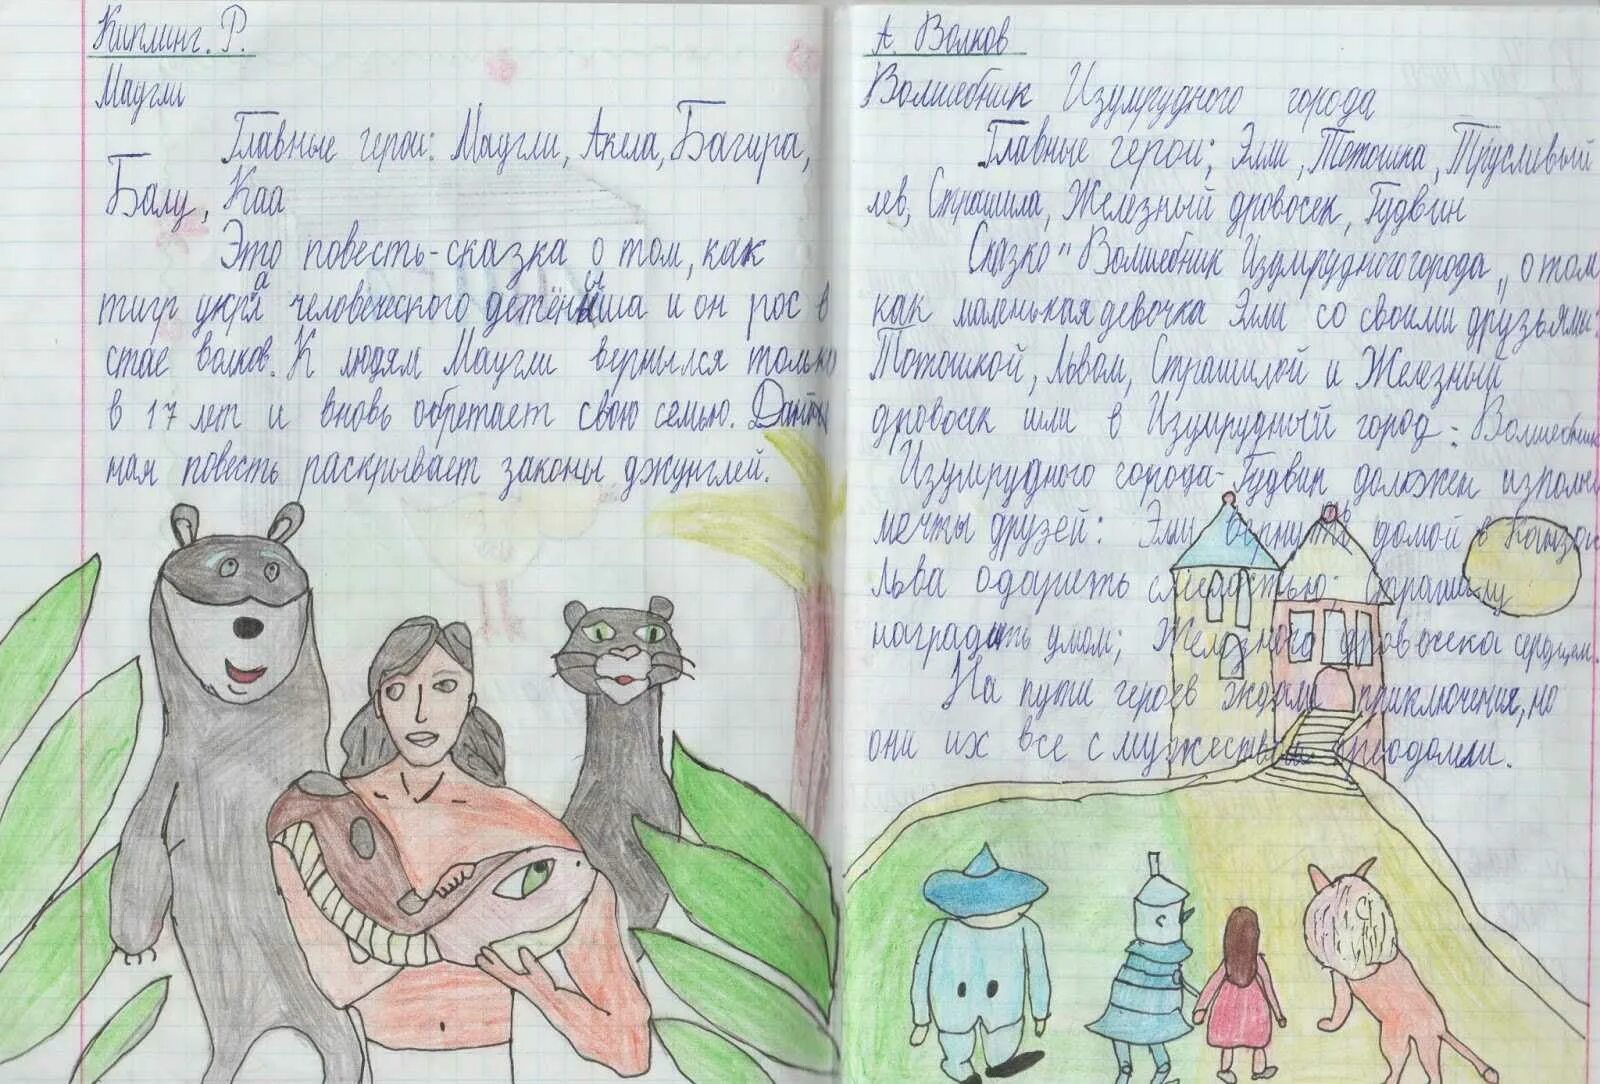 Киплинг. Р.
Маугли
Главные герои: Маугли, Акела, Багира,
Балу, Каа
Это повесть-сказка о том, как
тигр украл человеческого детёныша и он рос в
стае волков. К людям Маугли вернылся только
в 17 лет и вновь обретает свою семью. Данн
ная повесть раскрывает законы джунглей.
А. Волков
Волшебник Изумрудного города
Главные герои; Элли, Тотошка, Трусливый
лев, Страшила, Железный дровосек, Гудвин
Сказко "Волшебник Изумрудного города„ о том
как маленькая девочка Элли со своими друзьями:
Тотошкой, Львом, Страшилой и Железный
дровосек шли в Изумрудный город: Волшебник
Изумрудного города-Гудвин должен исполн
мечты друзей: Эли вернуть домой в Канзас
Льва одарить смелостью; Страшилу
наградить умом; Железного дровосека сердцем.
На пути героев ждали приключения, но
они их все с мужеством преодолели.